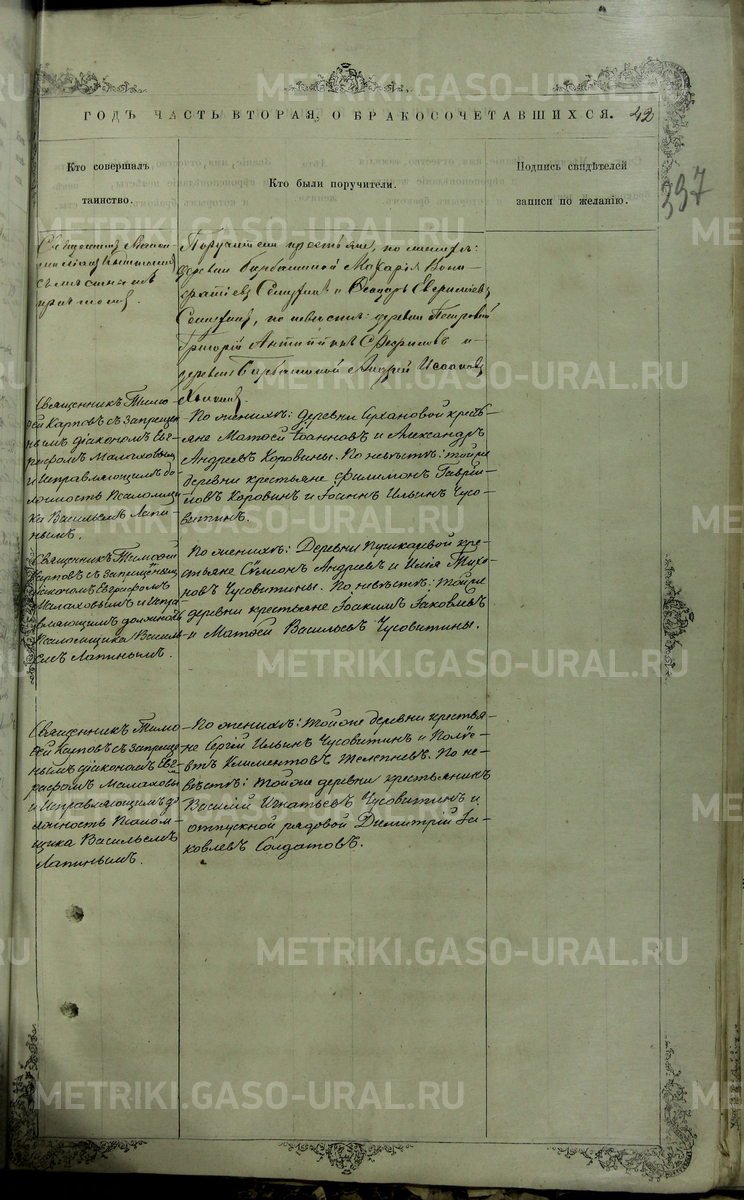 METRIKI.GASO-URAL.RU
ГОДЪ ЧАСТЬ ВТОРАЯ, О БРАКОСОЧЕТАВШИХСЯ. 42
397
Кто совершалъ
таинство.
Кто были поручители.
Подпись свидѣтелей
записи по желанію.
Священникъ
съ мѣстнымъ
причтомъ.
Поручители крестьяне, по женихѣ:
деревни Макарій
и
по невѣстѣ: деревни Петровой
Григорій и
деревни Андрей
Священникъ Тимо-
ѳей Карповъ съ запрещен-
нымъ діакономъ Ев-
графомъ Малаховым
и исправляющимъ до-
лжность Псаломщи-
ка Васильемъ Лапи-
нымъ.
По женихѣ: деревни крестья-
яне Матѳей Іоанновъ и Александръ
Андреевъ Коровины. По невѣстѣ: той же
деревни крестьяне Филимонъ Гаврі-
ловъ Коровинъ и Іоаннъ Ильинъ Чусо-
витинъ.
Священникъ Тимоѳей
Карповъ съ запрещеннымъ
діакономъ Евграфомъ
Малаховымъ и испра-
вляющимъ должность
Псаломщика Василь-
емъ Лапинымъ.
По женихѣ: Деревни Пушкаревой кре-
стьяне Сѷмеонъ Андреевъ и Илія Тихо-
новъ Чусовитины. По невѣстѣ: той же
деревни крестьяне Іоакимъ Іаковлевъ
и Матѳей Васильевъ Чусовитины.
Священникъ Тимо-
ѳей Карповъ съ запреще-
ннымъ діакономъ Ев-
графомъ Малаховы
и исправляющимъ до-
лжность Псалом-
щика Васильемъ
Лапинымъ.
По женихѣ: той же деревни крестья-
не Сергій Ильинъ Чусовитинъ и Полѵе-
вктъ Климентовъ По не-
вѣстѣ: той же деревни крестьянинъ
Василій Игнатьевъ Чусовитинъ и
отпускной рядовой Димитрій Іа-
ковлевъ Солдатовъ.